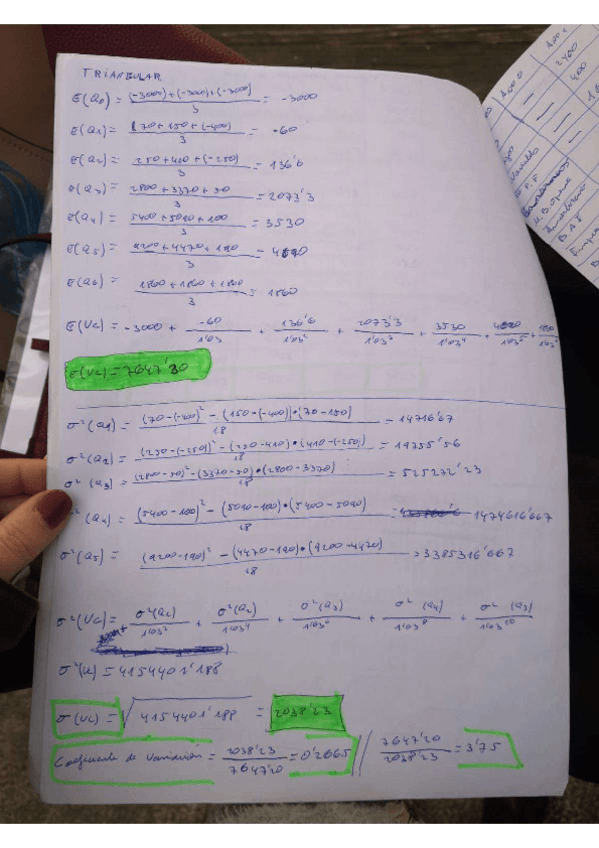 TRIANGULAR
E(a0) = (-3000)+(-3000)+(-3000) / 3 = -3000
E(a1) = 70+150+(-400) / 3 = -60
E(a2) = 250+410+(-250) / 3 = 136'6
E(a3) = 2800+3370+50 / 3 = 2073'3
E(a4) = 5400+5090+100 / 3 = 3530
E(a5) = 9200+4470+190 / 3
E(a6) = 1860+1860+1860 / 3 = 1860
E(VC) = -3000 + -60 / 1'03 + 136'6 / 1'03² + 2073'3 / 1'03³ + 3530 / 1'03⁴ +
E(VC) = 7647'20
σ²(a1) = (70-(-400))² - (150-(-400))·(70-150) / 18 = 14716'67
σ²(a2) = (250-(-250))² - (250-410)·(410-(-250)) / 18 = 19755'56
σ²(a3) = (2800-50)² - (3370-50)·(2800-3370) / 18 = 525272'23
σ²(a4) = (5400-100)² - (5090-100)·(5400-5090) / 18 = 1474616'667
σ²(a5) = (9200-190)² - (4470-190)·(9200-4470) / 18 = 3385316'667
σ²(VC) = σ²(a1) / 1'03² + σ²(a2) / 1'03⁴ + σ²(a3) / 1'03⁶ + σ²(a4) / 1'03⁸ + σ²(a5) / 1'03¹⁰
σ²(VC) = 4154401'188
σ(VC) = √4154401'188 = 2038'23
Coeficiente de Variación = 2038'23 / 7647'20 = 0'2665 // 7647'20 / 2038'23 = 3'75
Año 0
2400
400